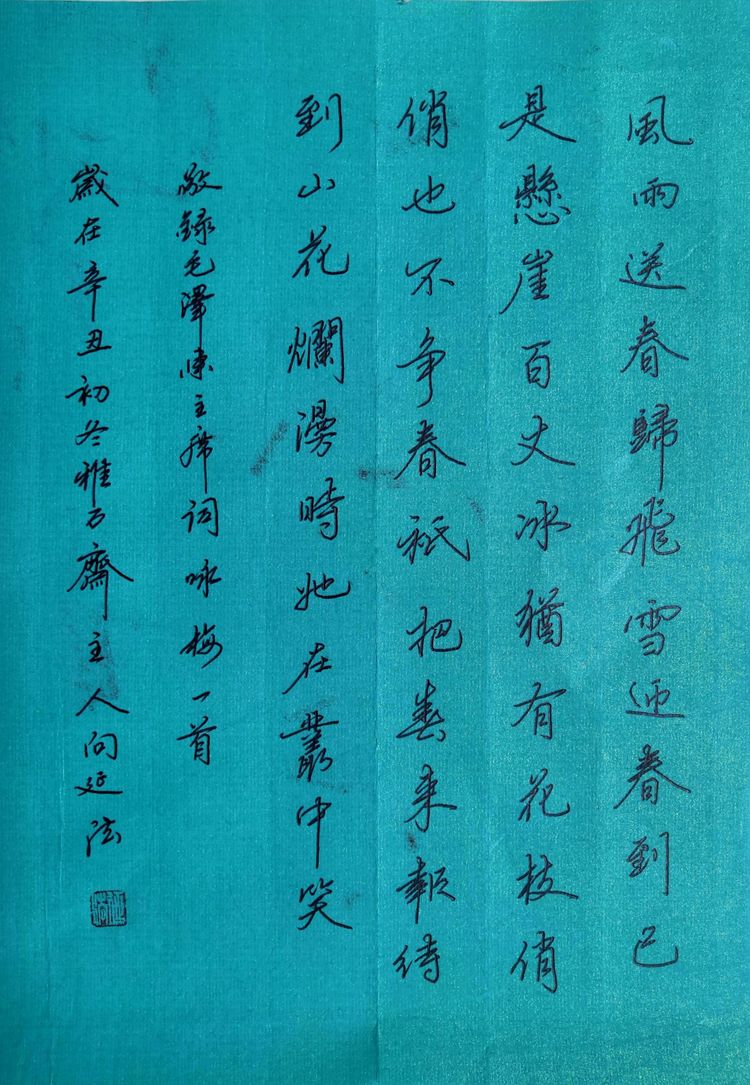 風雨送春歸飛雪迎春到已
是懸崖百丈冰猶有花枝俏
俏也不争春祇把春来報待
到山花爛漫時她在叢中笑
敬録毛澤東主席詞咏梅一首
歲在辛丑初冬雅万齋主人向延法